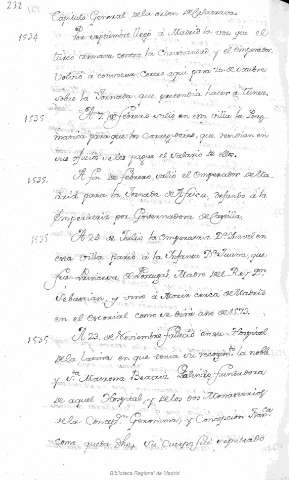 232
Capitulo General de la orden de Calatrava
1534 Por septiembre llegó a Madrid la voz que el
turco armava contra la Christiandad y el emperador
volvió a convocar Cortes aqui para 20 de octubre
sobre la Jornada que pretendia hacer a Tunez.
1535. A 7 de febrero salió en esta villa la Prag
matica para que los Corregidores, que
sus oficios se les pague el salario de ellos.
1535. A fin de febrero salió el Emperador de Ma
drid para la Jornada de Africa, dejando a la
Emperatriz por Governadora de Castilla.
1535 A 24 de Julio la Emperatriz Dª Isavel en
esta villa parió a la Infanta Dª Juana, que
fue Princesa de Portugal Madre del Rey Don
Sebastian, y vino a Morir cerca de Madrid
en el Escorial como se dirá año de 1573.
1535 A 23 de Noviembre falleció en su Hospital
de la Latina en que tenia su recogimto la noble
y Sta Matrona Beatriz Galindez fundadora
de aquel Hospital, y de los dos Monasterios
de la Concepn Geronima, y Concepcion Fran
cisca queda dho, su Cuerpo fue sepultado
Biblioteca Regional de Madrid